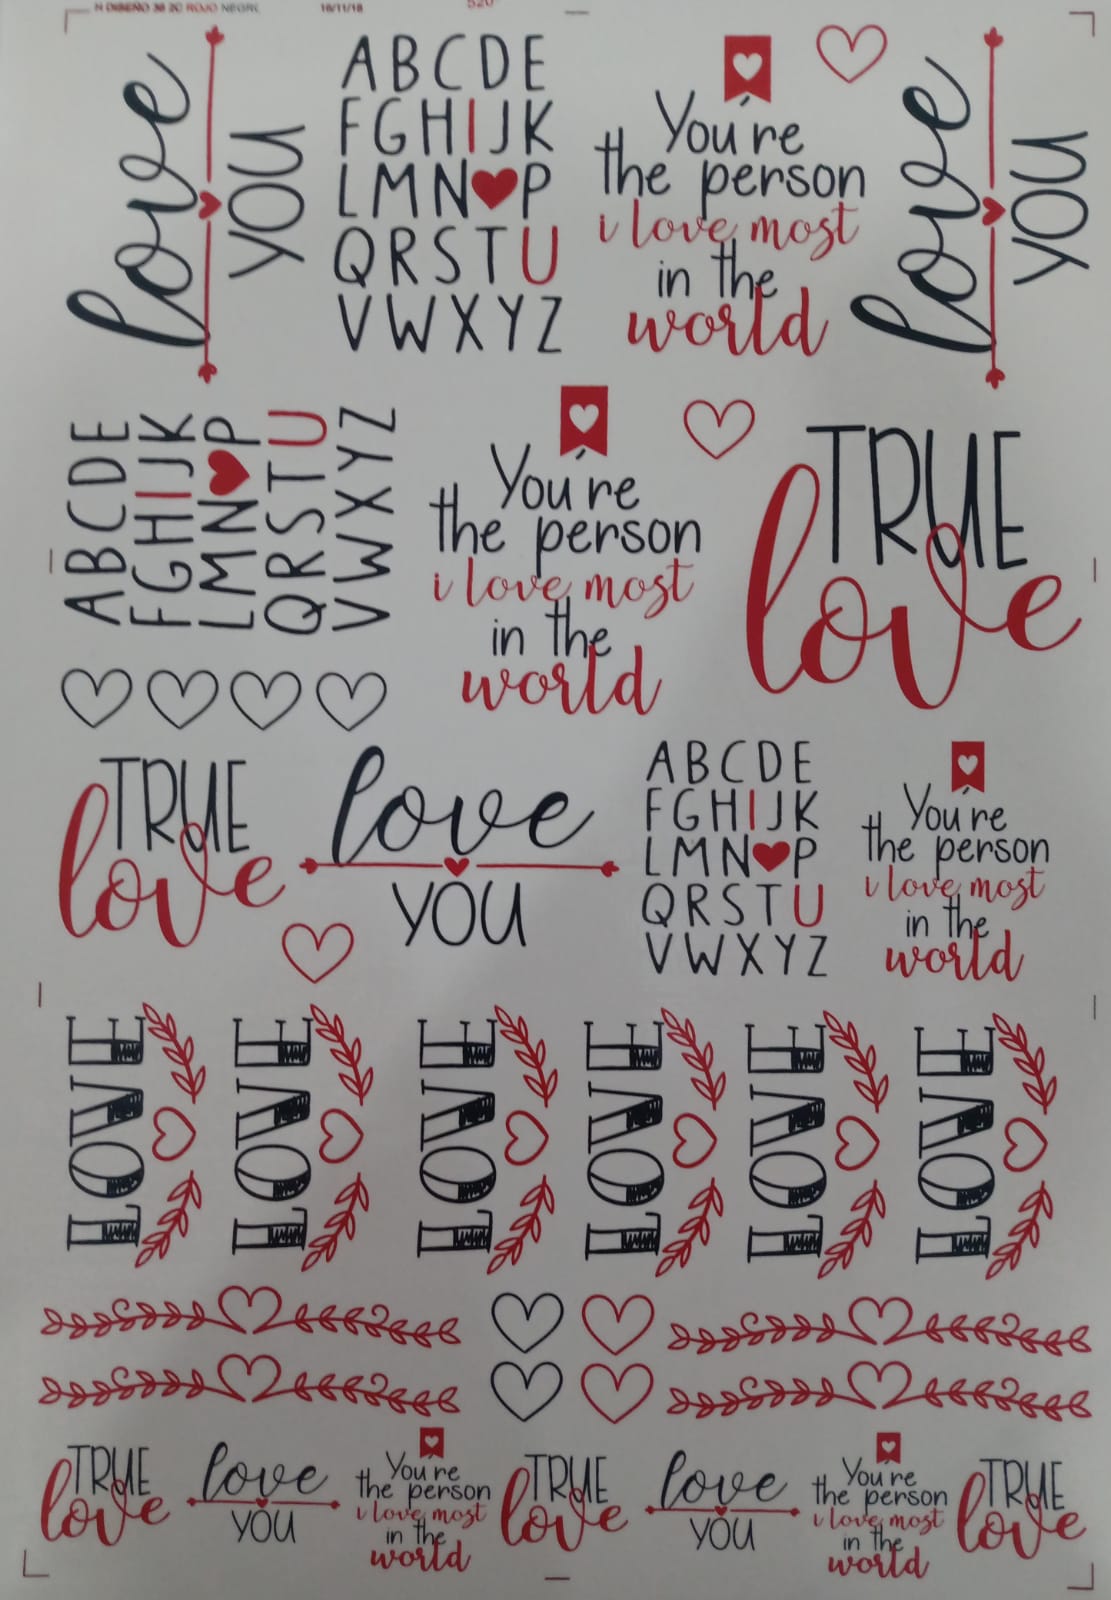 N DISEÑO 38 2C ROJO NEGRO
16/11/18
520
love
YOU
ABCDE
FGHIJK
LMN♥P
QRSTU
VWXYZ
You're
the person
i love most
in the
world
love
YOU
ABCDE
FGHIJK
LMN♥P
QRSTU
VWXYZ
You're
the person
i love most
in the
world
TRUE
love
TRUE
love
love
YOU
ABCDE
FGHIJK
LMN♥P
QRSTU
VWXYZ
You're
the person
i love most
in the
world
LOVE
LOVE
LOVE
LOVE
LOVE
LOVE
TRUE
love
love
YOU
You're
the person
i love most
in the
world
TRUE
love
love
YOU
You're
the person
i love most
in the
world
TRUE
love